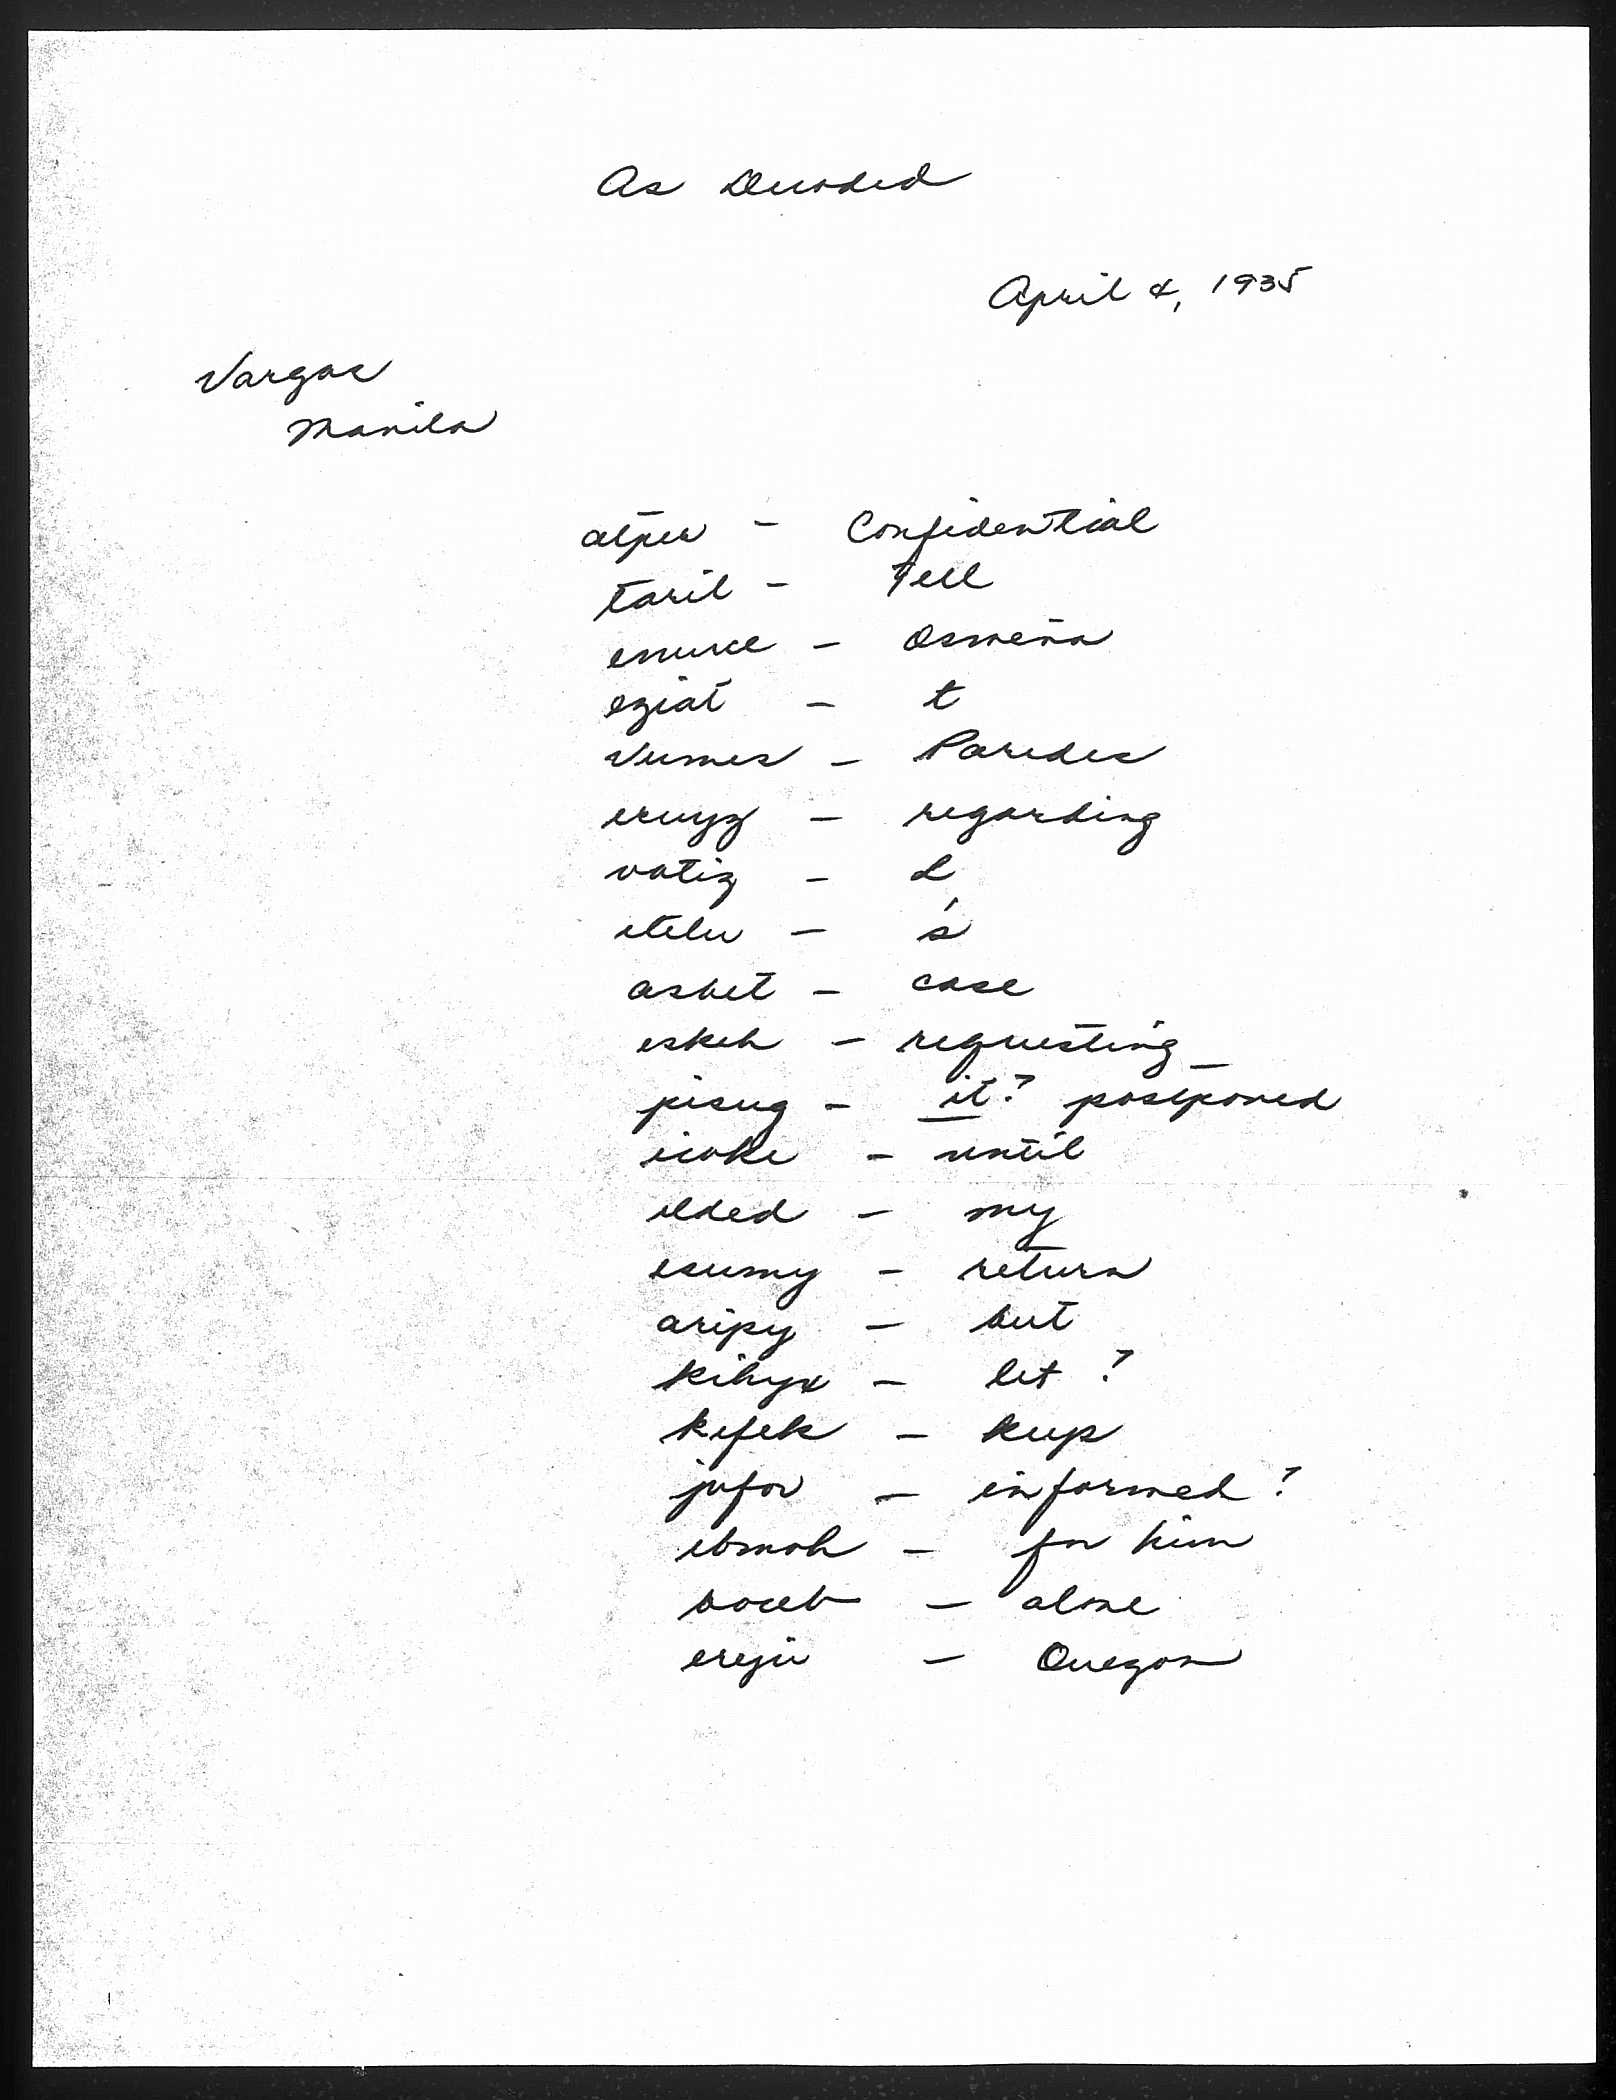 As Decoded
April 4, 1935
Vargas
Manila
atpew - Confidential
taril - Tell
enuce - Osmeña
eziat - t
vumes - Paredes
eruyz - regarding
vatiz - L
etelu - 's
asbet - case
eskeh - requesting
pisug - it? postponed
icoke - until
elded - my
esumy - return
aripy - but
kihyx - let ?
kefek - keep
jufov - informed ?
ebmoh - for him
boceb - alone
ereju - Quezon